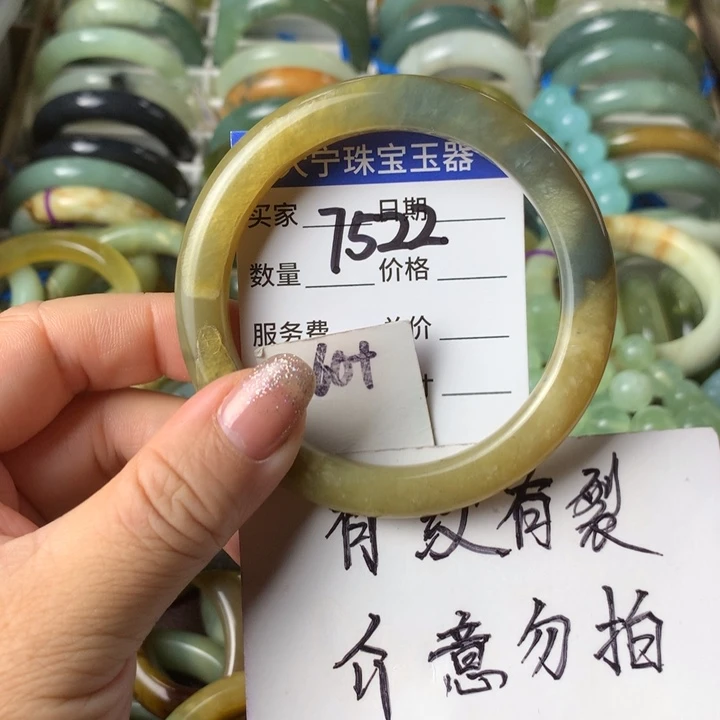 宁珠宝玉器
买家 日期
7522
数量 价格
服务费 单价
60+
有纹有裂
介意勿拍